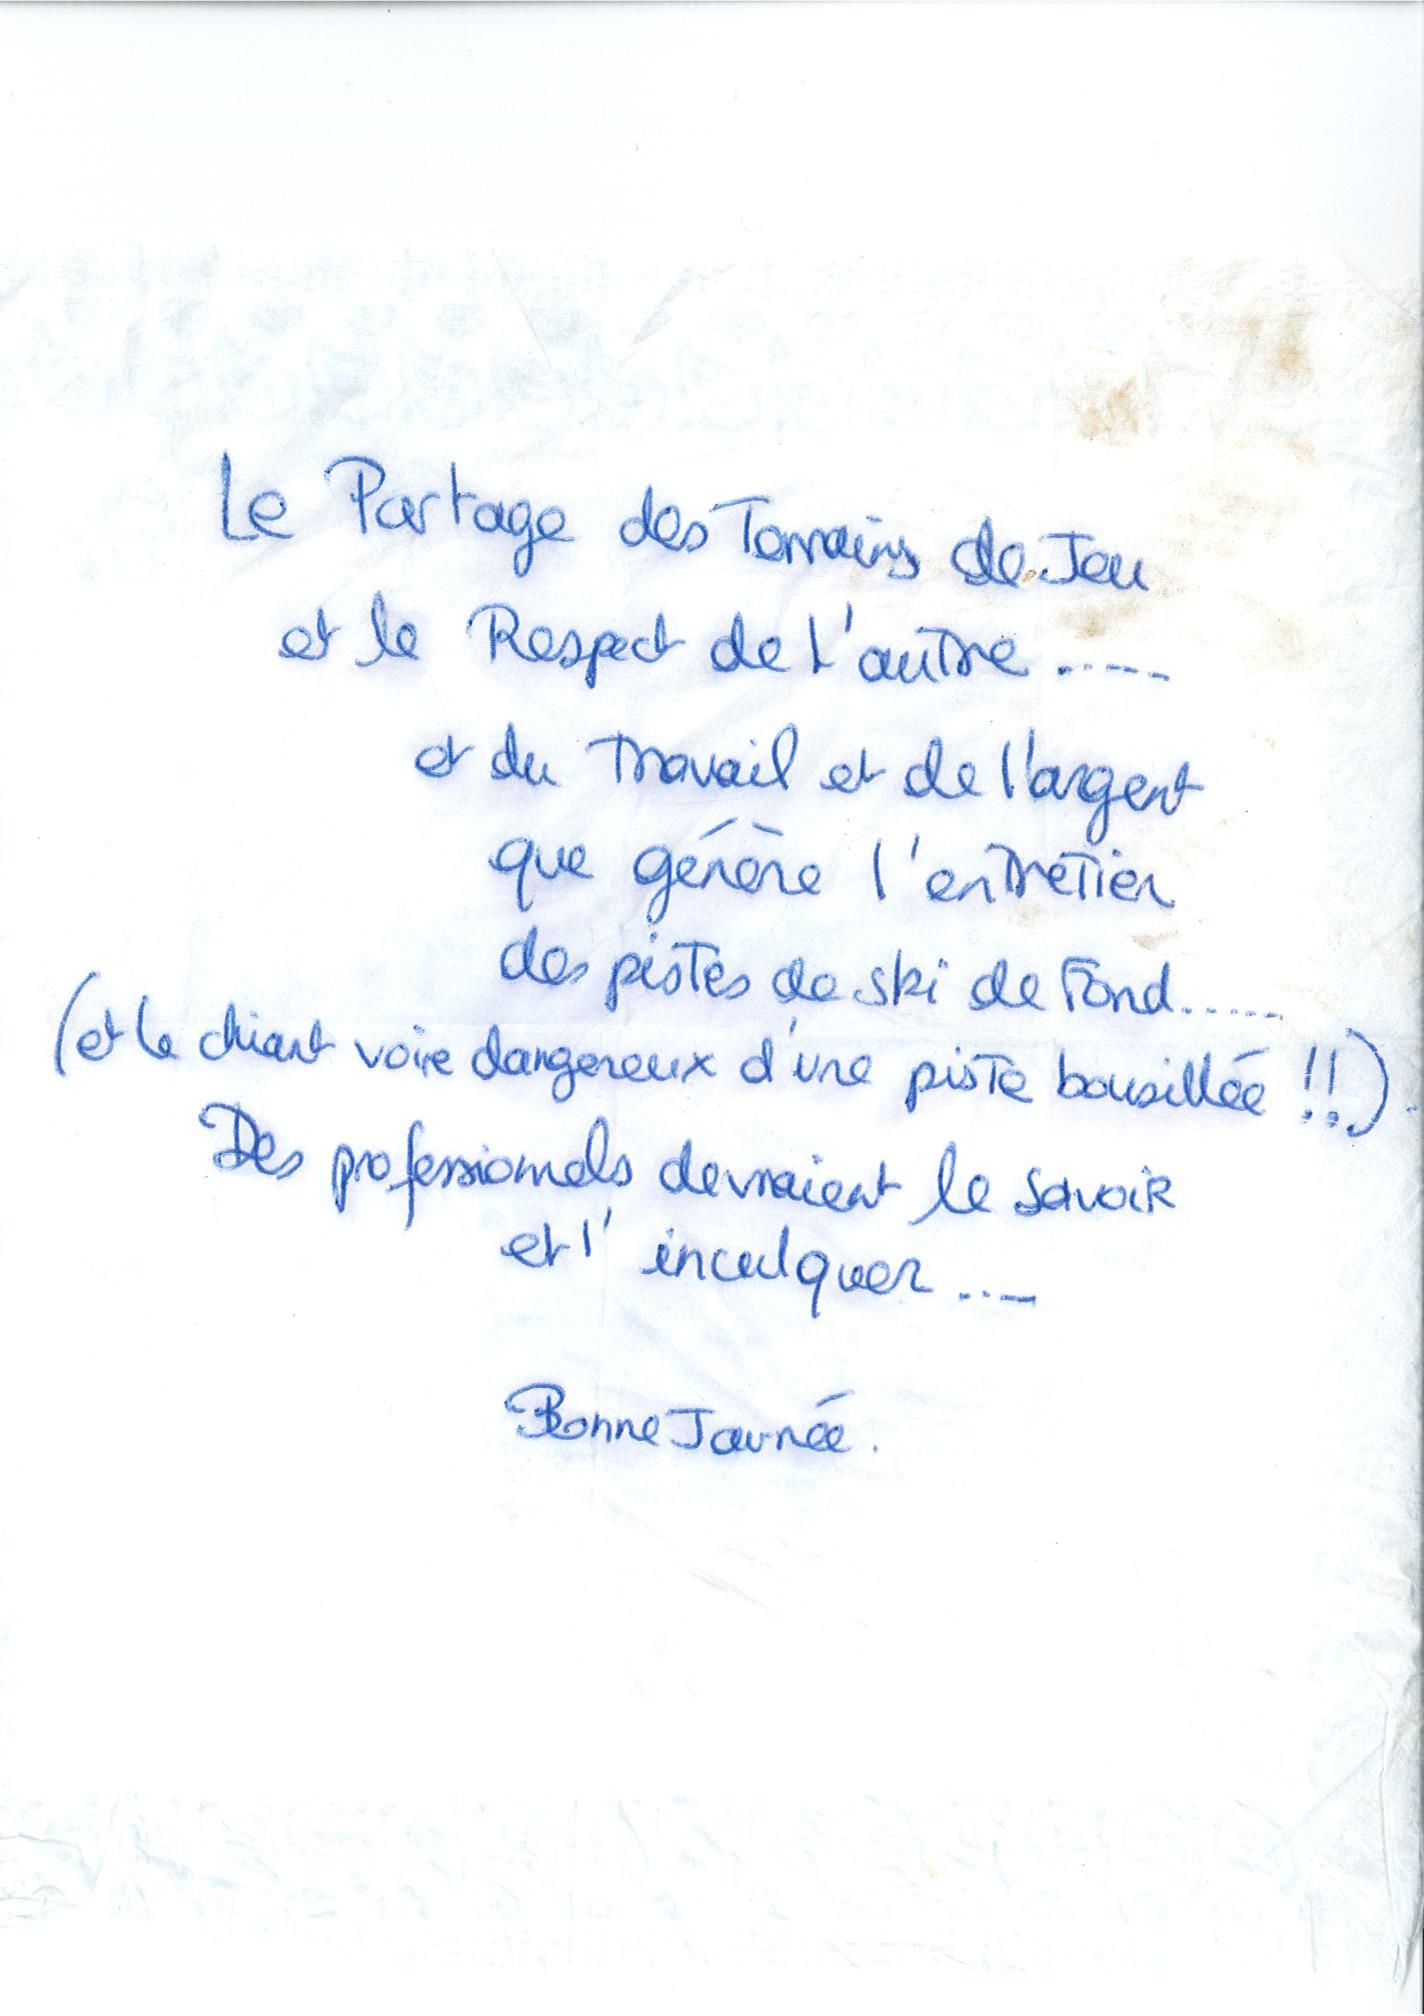 Le Partage des Terrains de Jeu
et le Respect de L'autre .....
et du Travail et de l'argent
que génère l'entretien
des pistes de ski de Fond......
(et le chiant voire dangereux d'une piste bousillée !!)
Des professionnels devraient le savoir
et l'inculquer ....
Bonne Journée.